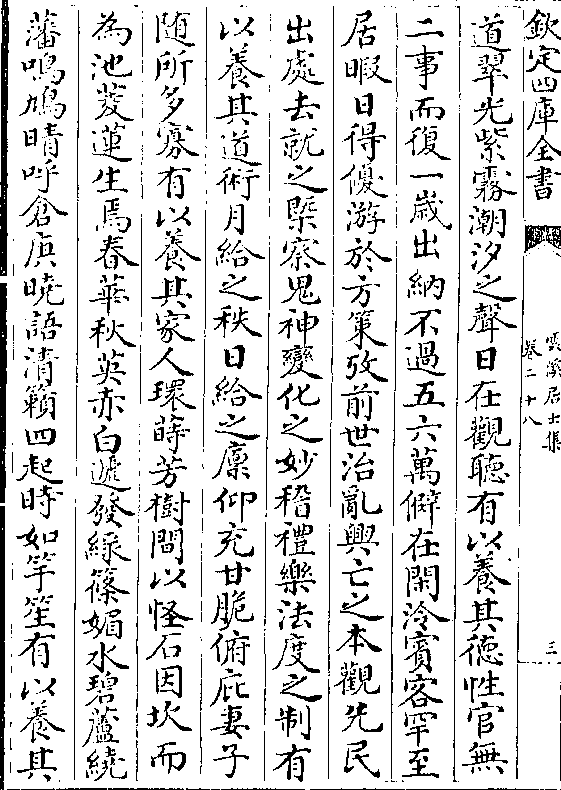 欽定四庫全書
雲溪居士集
卷二十八
三
道翠光紫霧潮汐之聲日在觀聽有以養其徳性官無
二事而復一歳出納不過五六萬僻在閒冷賓客罕至
居暇日得優游於方策攷前世治亂興亡之本觀先民
出處去就之槩察鬼神變化之妙稽禮樂法度之制有
以養其道術月給之秩日給之廪仰充甘脆俯庇妻子
随所多寡有以養其家人環蒔芳樹間以怪石因坎而
為池菱蓮生焉春華秋英赤白遞發緑篠媚水碧蘆繞
藩鳴鳩晴呼倉庚曉語清籟四起時如竽笙有以養其